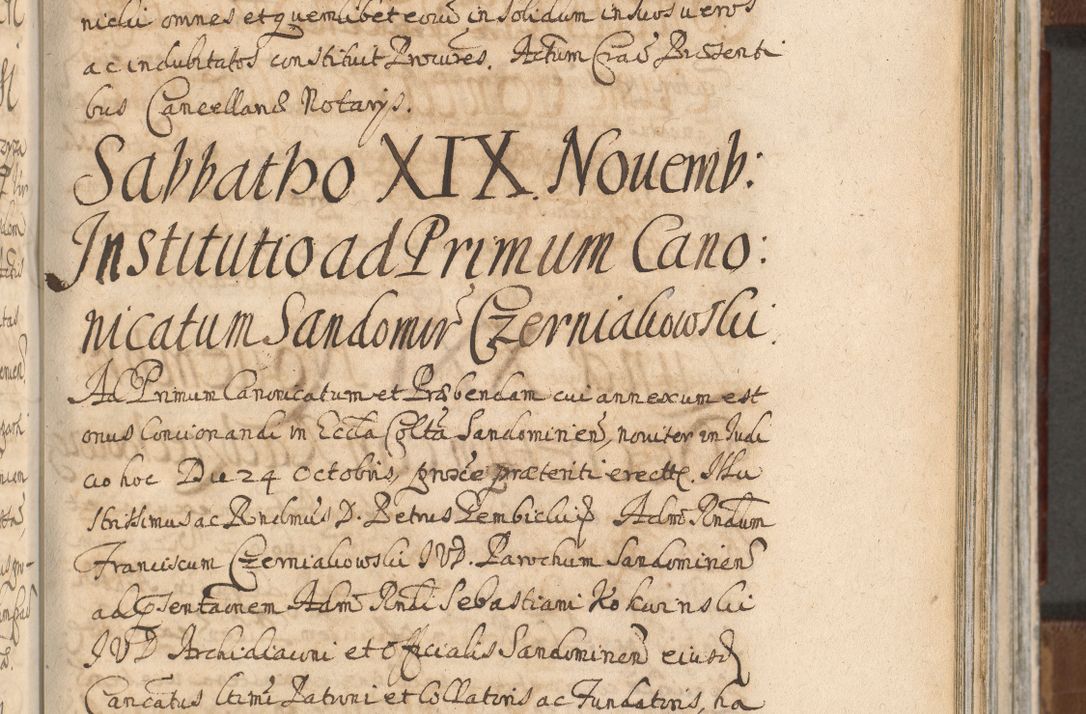 nicki omnes et quemlibet eorũ in solidum in suos veros
ac indubitatos constituit Procures. Actum Crac̃ Præsenti
bus Cancellariæ Notarijs.
Sabbatho XIX. Nouemb:
Institutio ad Primum Cano:
nicatum Sandomir̃ Czerniakowski.
Ad Primum Canonicatum et Præbendam cui annexum est
onus Concionandi in Eccła Colłta Sandomirien̄, noviter in Judi
cio hoc Die 24 octobris, præteriti erectæ. Illu
strissimus ac Rndmũs D. Petrus Gembicki Admõ Rndum
Franciscum Czerniakowski JVD. Parochum Sandomirien̄
ad p̃sentaõnem Admõ Rndi Sebastiani Kokwinski
JVD Archidiaconi et Officialis Sandomirien̄ eiusd̃
Canõcatus ltimi Patroni et Collatoris ac Fundatoris, ha